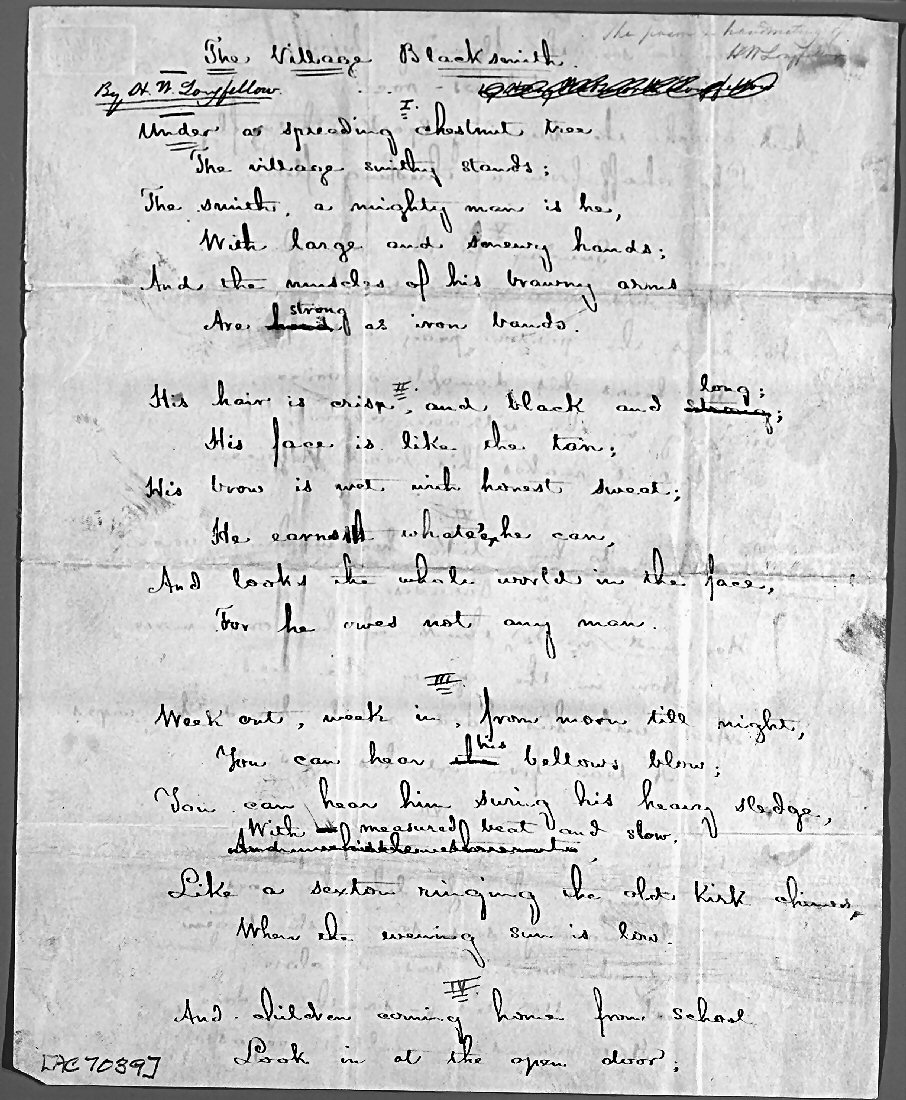 The poem in handwriting of
The Village Blacksmith.
By H. W. Longfellow.
I.
Under a spreading chestnut tree
The village smithy stands;
The smith, a mighty man is he,
With large and sinewy hands;
And the muscles of his brawny arms
Are hard strong as iron bands.
II.
His hair is crisp, and black and strong; long;
His face is like the tan;
His brow is wet with honest sweat;
He earns whate'er he can,
And looks the whole world in the face,
For he owes not any man.
III.
Week out, week in, from morn till night,
You can hear the his bellows blow;
You can hear him swing his heavy sledge,
With measured beat and slow,
Like a sexton ringing the old kirk chimes,
When the evening sun is low.
IV.
And children coming home from school
Look in at the open door;
[AC7039]